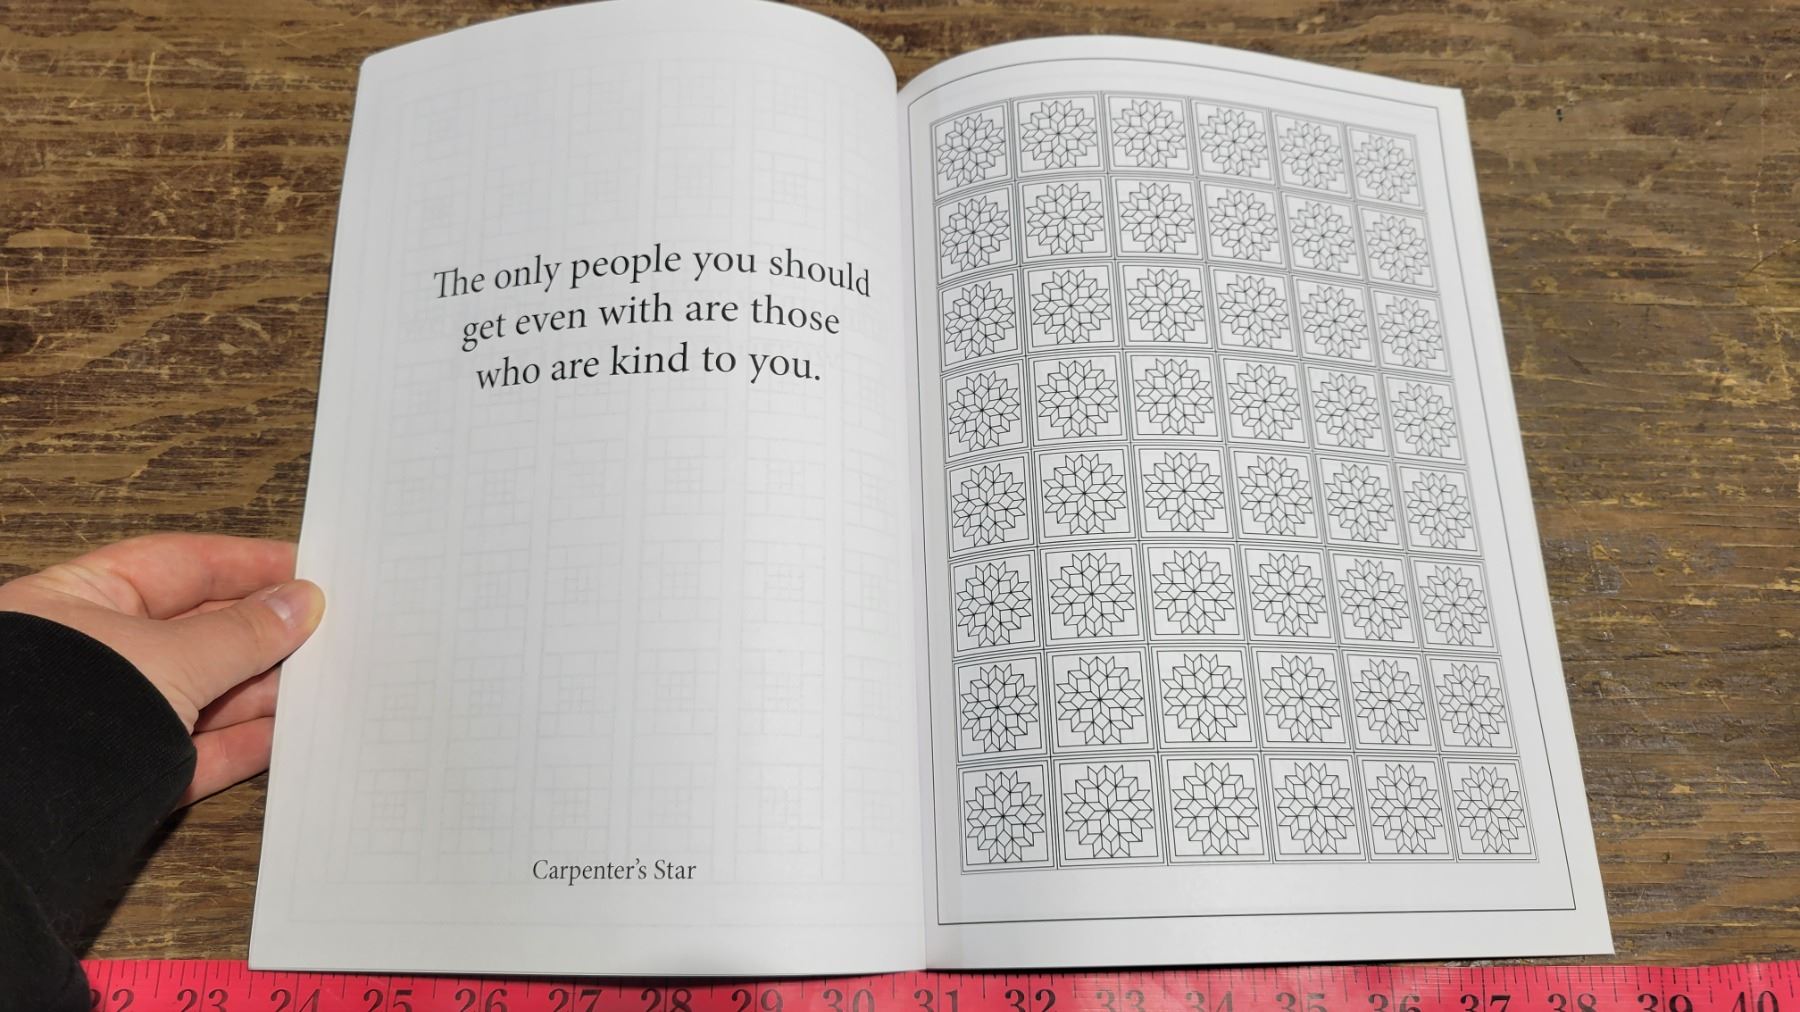 The only people you should
get even with are those
who are kind to you.
Carpenter's Star
22 23 24 25 26 27 28 29 30 31 32 33 34 35 36 37 38 39 40